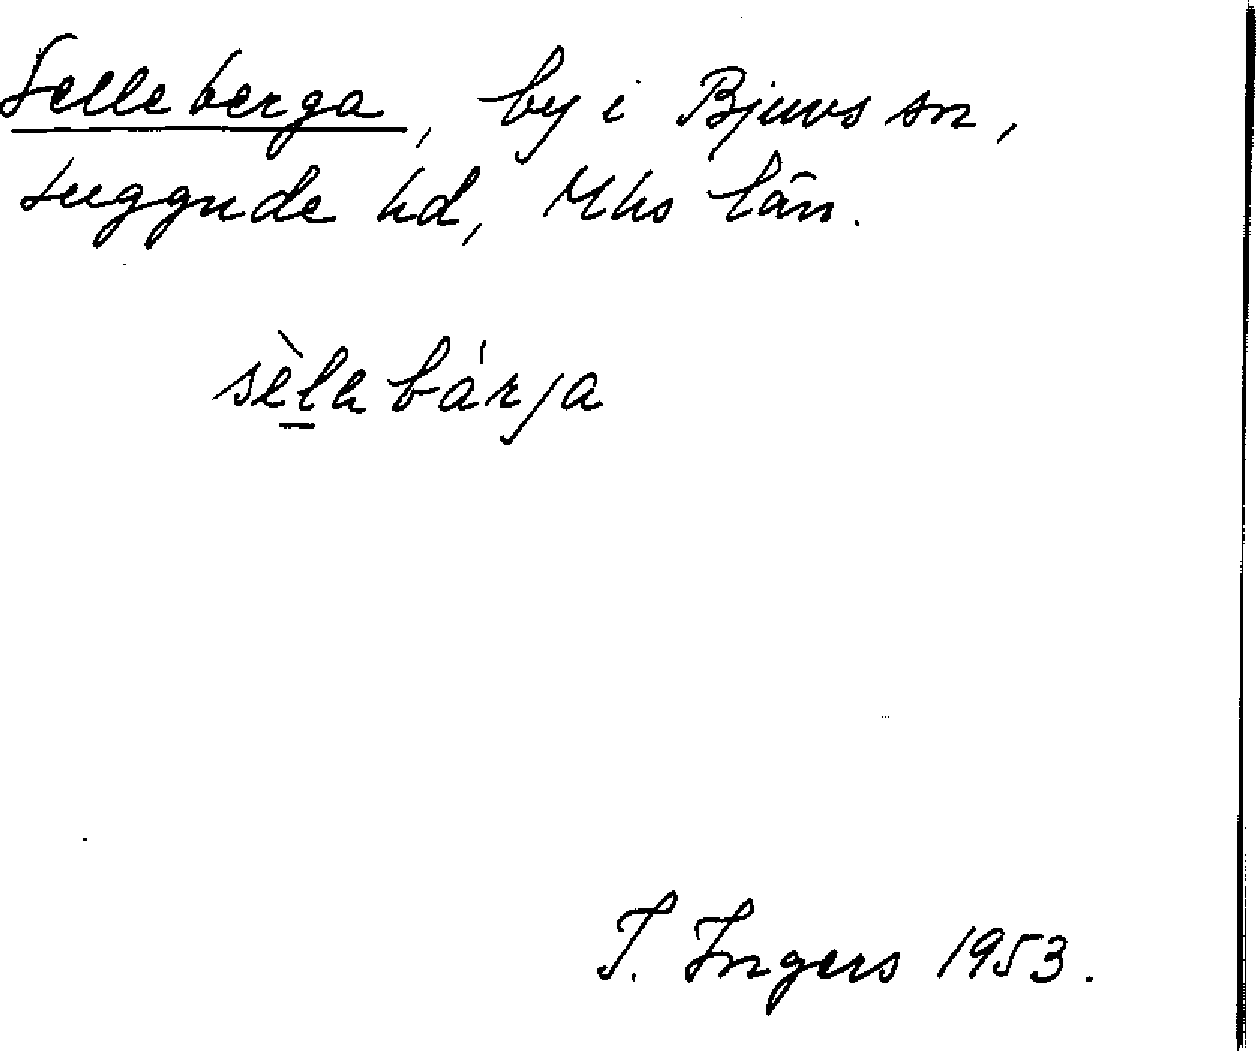 Selleberga, by i Bjuvs sn,
Luggude hd, Mhs län.
sèle bárja
I. Ingers 1953.